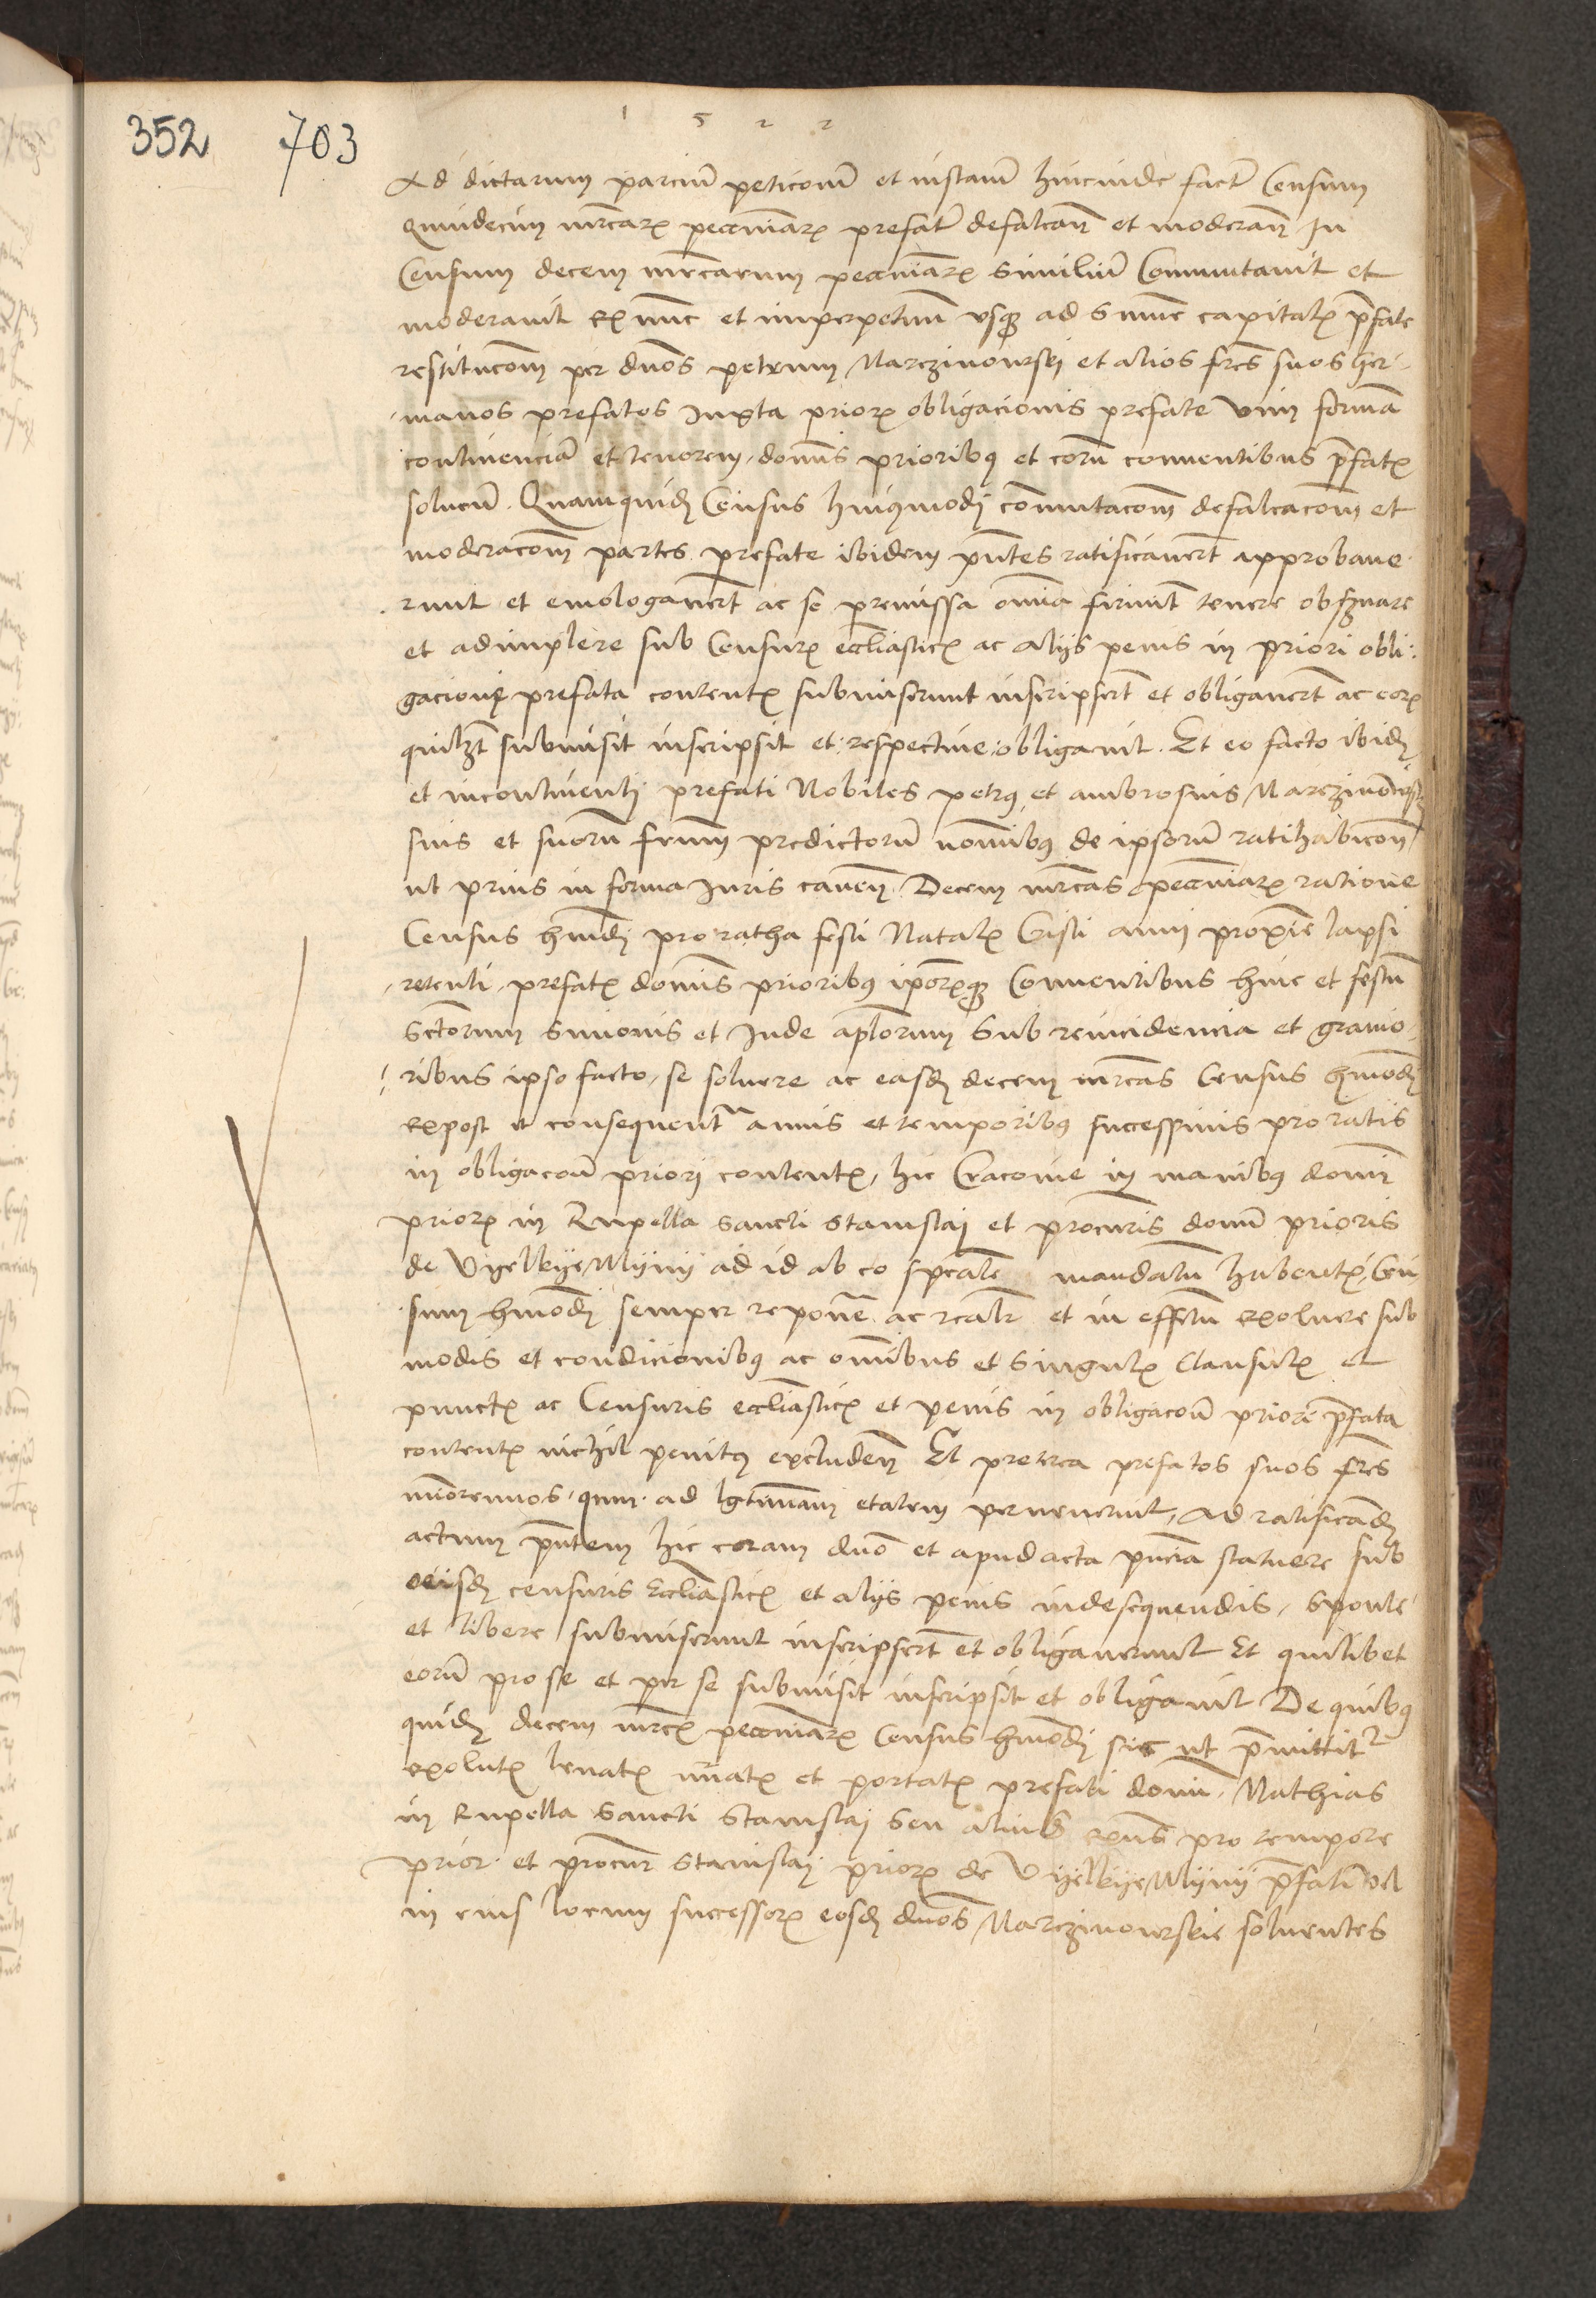 1 5 2 2
352 703
Ad dictarum parciũ peticoñ et instanẽ hincinde factẽ Censum
Quindecim mrcarꝝ pecuniarꝝ prefatẽ defalcañ et moderañ In
Censum decem mrcarum pecuniarꝝ similiũ Commutavit et
moderavit ex nunc et imperpetuũ vsqꝫ ad summe capitalꝭ p̃fate
restitucoñ per dños petrum Marczinowski et alios fres̃ suos ger-
manos prefatos Iuxta priorꝭ obligacionis prefate vim formã
continenciã et tenorem, domis̃ prioribꝯ et eorũ conuentibus p̃fatꝭ
soluenẽ. Quamquidẽ Census huiꝯmodi com̃utacoñ defalcacoñ et
moderacoñ partes prefate ibidem pñtes ratificauert̃ approbaue-
runt et emologauert̃ ac se premissa omĩa tenere obseruare
et adimplere sub Censurꝭ ecclĩasticꝭ ac alijs penis in priori obli-
gacione prefata contentꝭ submiserunt inscripsert̃ et obligauert̃ ac eorꝭ
quilibet submisit inscripsit et respectiue obligauit. Et eo facto ibidẽ
et incontinenti prefati Nobiles petrus et ambrosius Marczinowsci
suis et suorũ frum̃ predictorũ nomĩbꝯ de ipsorũ ratihabicoñ
ut prius in forma Iuris caueñ Decem mrcas pecuniarꝝ ratione
Census hmõdi pro ratha festi Natalꝭ Cristi anni proxĩe lapsi
retenti, prefatꝭ domis̃ prioribꝯ ipõrꝭqꝫ Conuentibus hinc et festũ
Sctõrum Simonis et Iude aplõrum sub reincidencia et grauio-
ribus ipso facto, se soluere ac easdẽ decem mrcas Census hmõdi
expost et consequent̃ annis et temporibꝯ successiuis pro ratis
in obligacoñ priori contentꝭ, hic Cracouie in manibꝯ domĩ
priorꝭ in Rupella sancti Stanislai et procuris̃ domĩ prioris
de Vyelkye Mlyny ad id ab eo speciale mandatũ habentꝭ, Cen
sum hmõdi semper reponeñ ac realr̃ et in effectũ exoluere sub
modis et condicionibꝯ ac omĩbus et singulꝭ Clausulꝭ et
punctꝭ ac Censuris ecclĩasticꝭ et penis in obligacoñ priori p̃fata
contentꝭ nichil penitꝯ excludeñ Et preterea prefatos suos fres̃
minorennos, qum ad legitimam etatem peruenerint, ad ratificandũ
actum pñtem hic coram dño et apud acta pñcia statuere sub
eisdẽ censuris Ecclĩasticꝭ et alijs penis indesequendis, sponte
et libere submiserunt inscripsert̃ et obligauerunt Et quilibet
eorũ pro se et per se submisit inscripsit et obligauit De quibꝯ
quidẽ decem mrcꝭ pecuniarꝝ Census hmõdi sic ut p̃mittit̃
exolutꝭ leuatꝭ nũatꝭ et portatꝭ prefati domĩ Mathias
in Rupella Sancti Stanislai seu alius exñs pro tempore
prior et procur̃ Stanislai priorꝭ de Vyelkye Mlyny p̃fati vel
in eius locum successorꝭ eosdẽ dños Marczinowskie soluentes